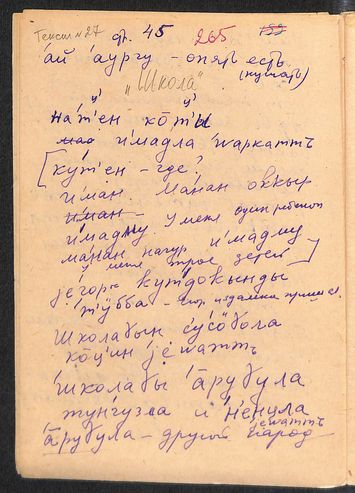 Текст №27 стр. 45 265 159
а́й а́ургу – опять есть
(кушать)
„Школа"
на́т'ен ко̄т'ы
мао и́мадла и́варкаттъ
[ку́т'ен – где?
и́ман. Ма́нан оккыр
и́ман –
и́мадмы. у меня один ребенок
ма́нан нагур и́мадму
у меня трое детей]
је́горъ кут'докынды
т'ӱ́бба – издалека
школабын сӱсӧбола
ко̄ц'ин је́ваттъ
школабы а̄рубула
тунгузла и н'е́нула
јеваттъ
а̄рубула – другой народ